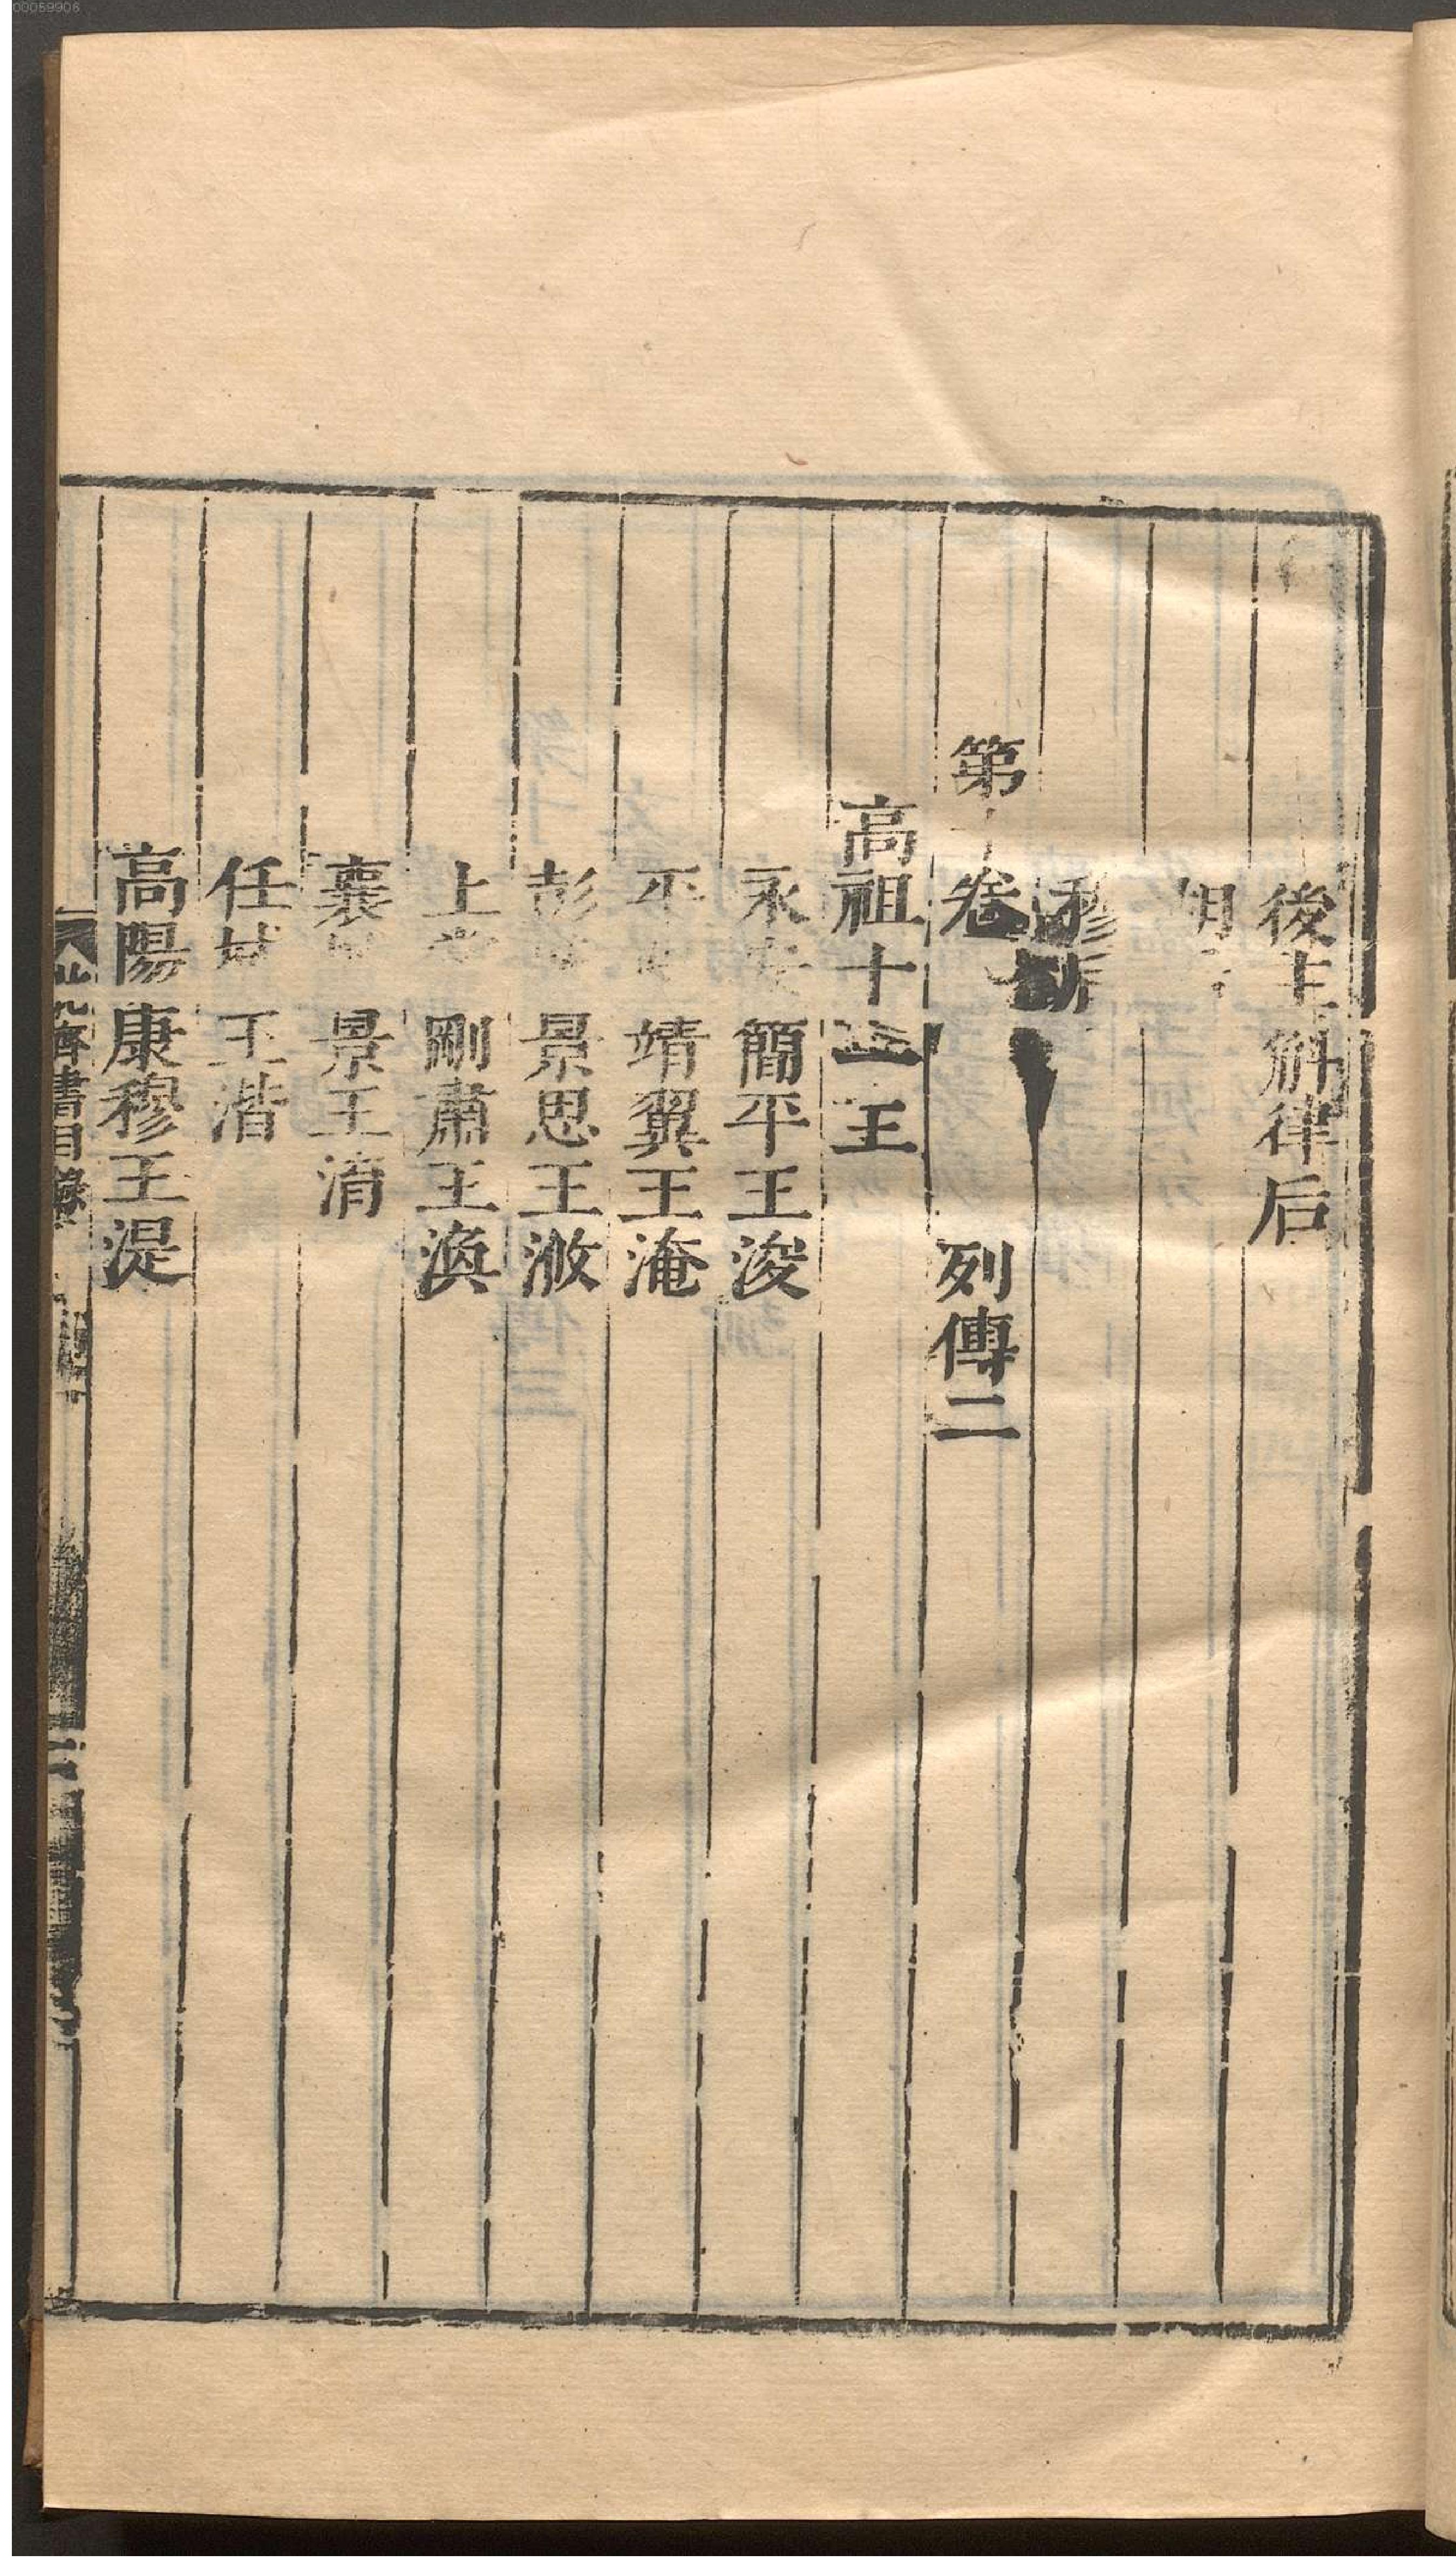 後主斛律后
胡
穆
第十卷 列傳二
高祖十一王
永安簡平王浚
平 靖翼王淹
彭 景思王浟
上 剛肅王渙
襄 景王淯
任城王湝
高陽康穆王湜
北齊書目録
二
00059906